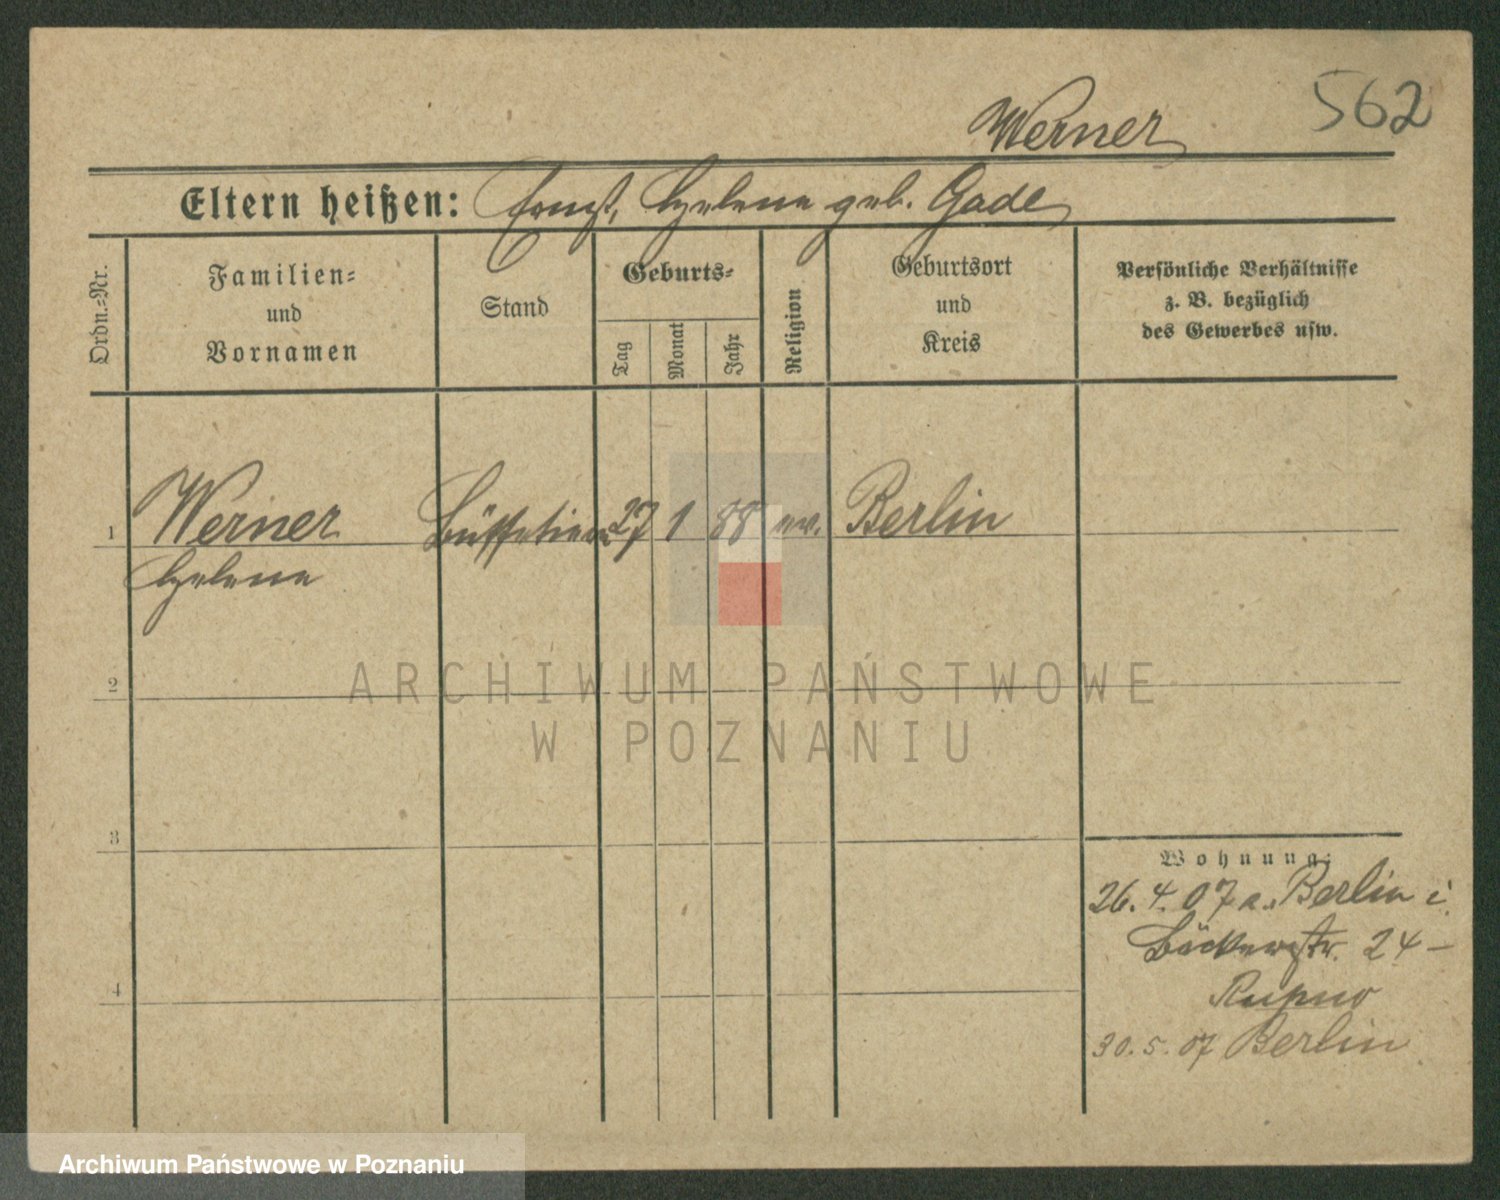 562
Werner
Eltern heißen: Ernst, Helene geb. Gade
Ordn.-Nr.
Familien- und Vornamen
Stand
Geburts-
Tag
Monat
Jahr
Religion
Geburtsort und Kreis
Persönliche Verhältnisse
z. B. bezüglich
des Gewerbes usw.
1 Werner Büffetiere 27 1 88 ev. Berlin
Helene
2
3
4
Wohnung:
26. 4. 07 a. Berlin i.
Bäckerstr. 24 –
30. 5. 07 Berlin
ARCHIWUM PAŃSTWOWE
W POZNANIU
Archiwum Państwowe w Poznaniu